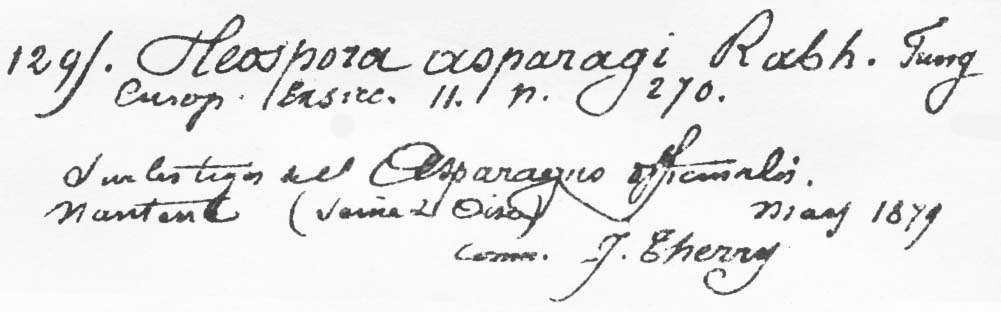 1291. Pleospora asparagi Rabh. Fung
Europ. Exsicc. II. n. 270.
Sur les tiges de l'Asparagus officinalis.
Nanterre (Seine & Oise) May 1879
Comm. J. Therry